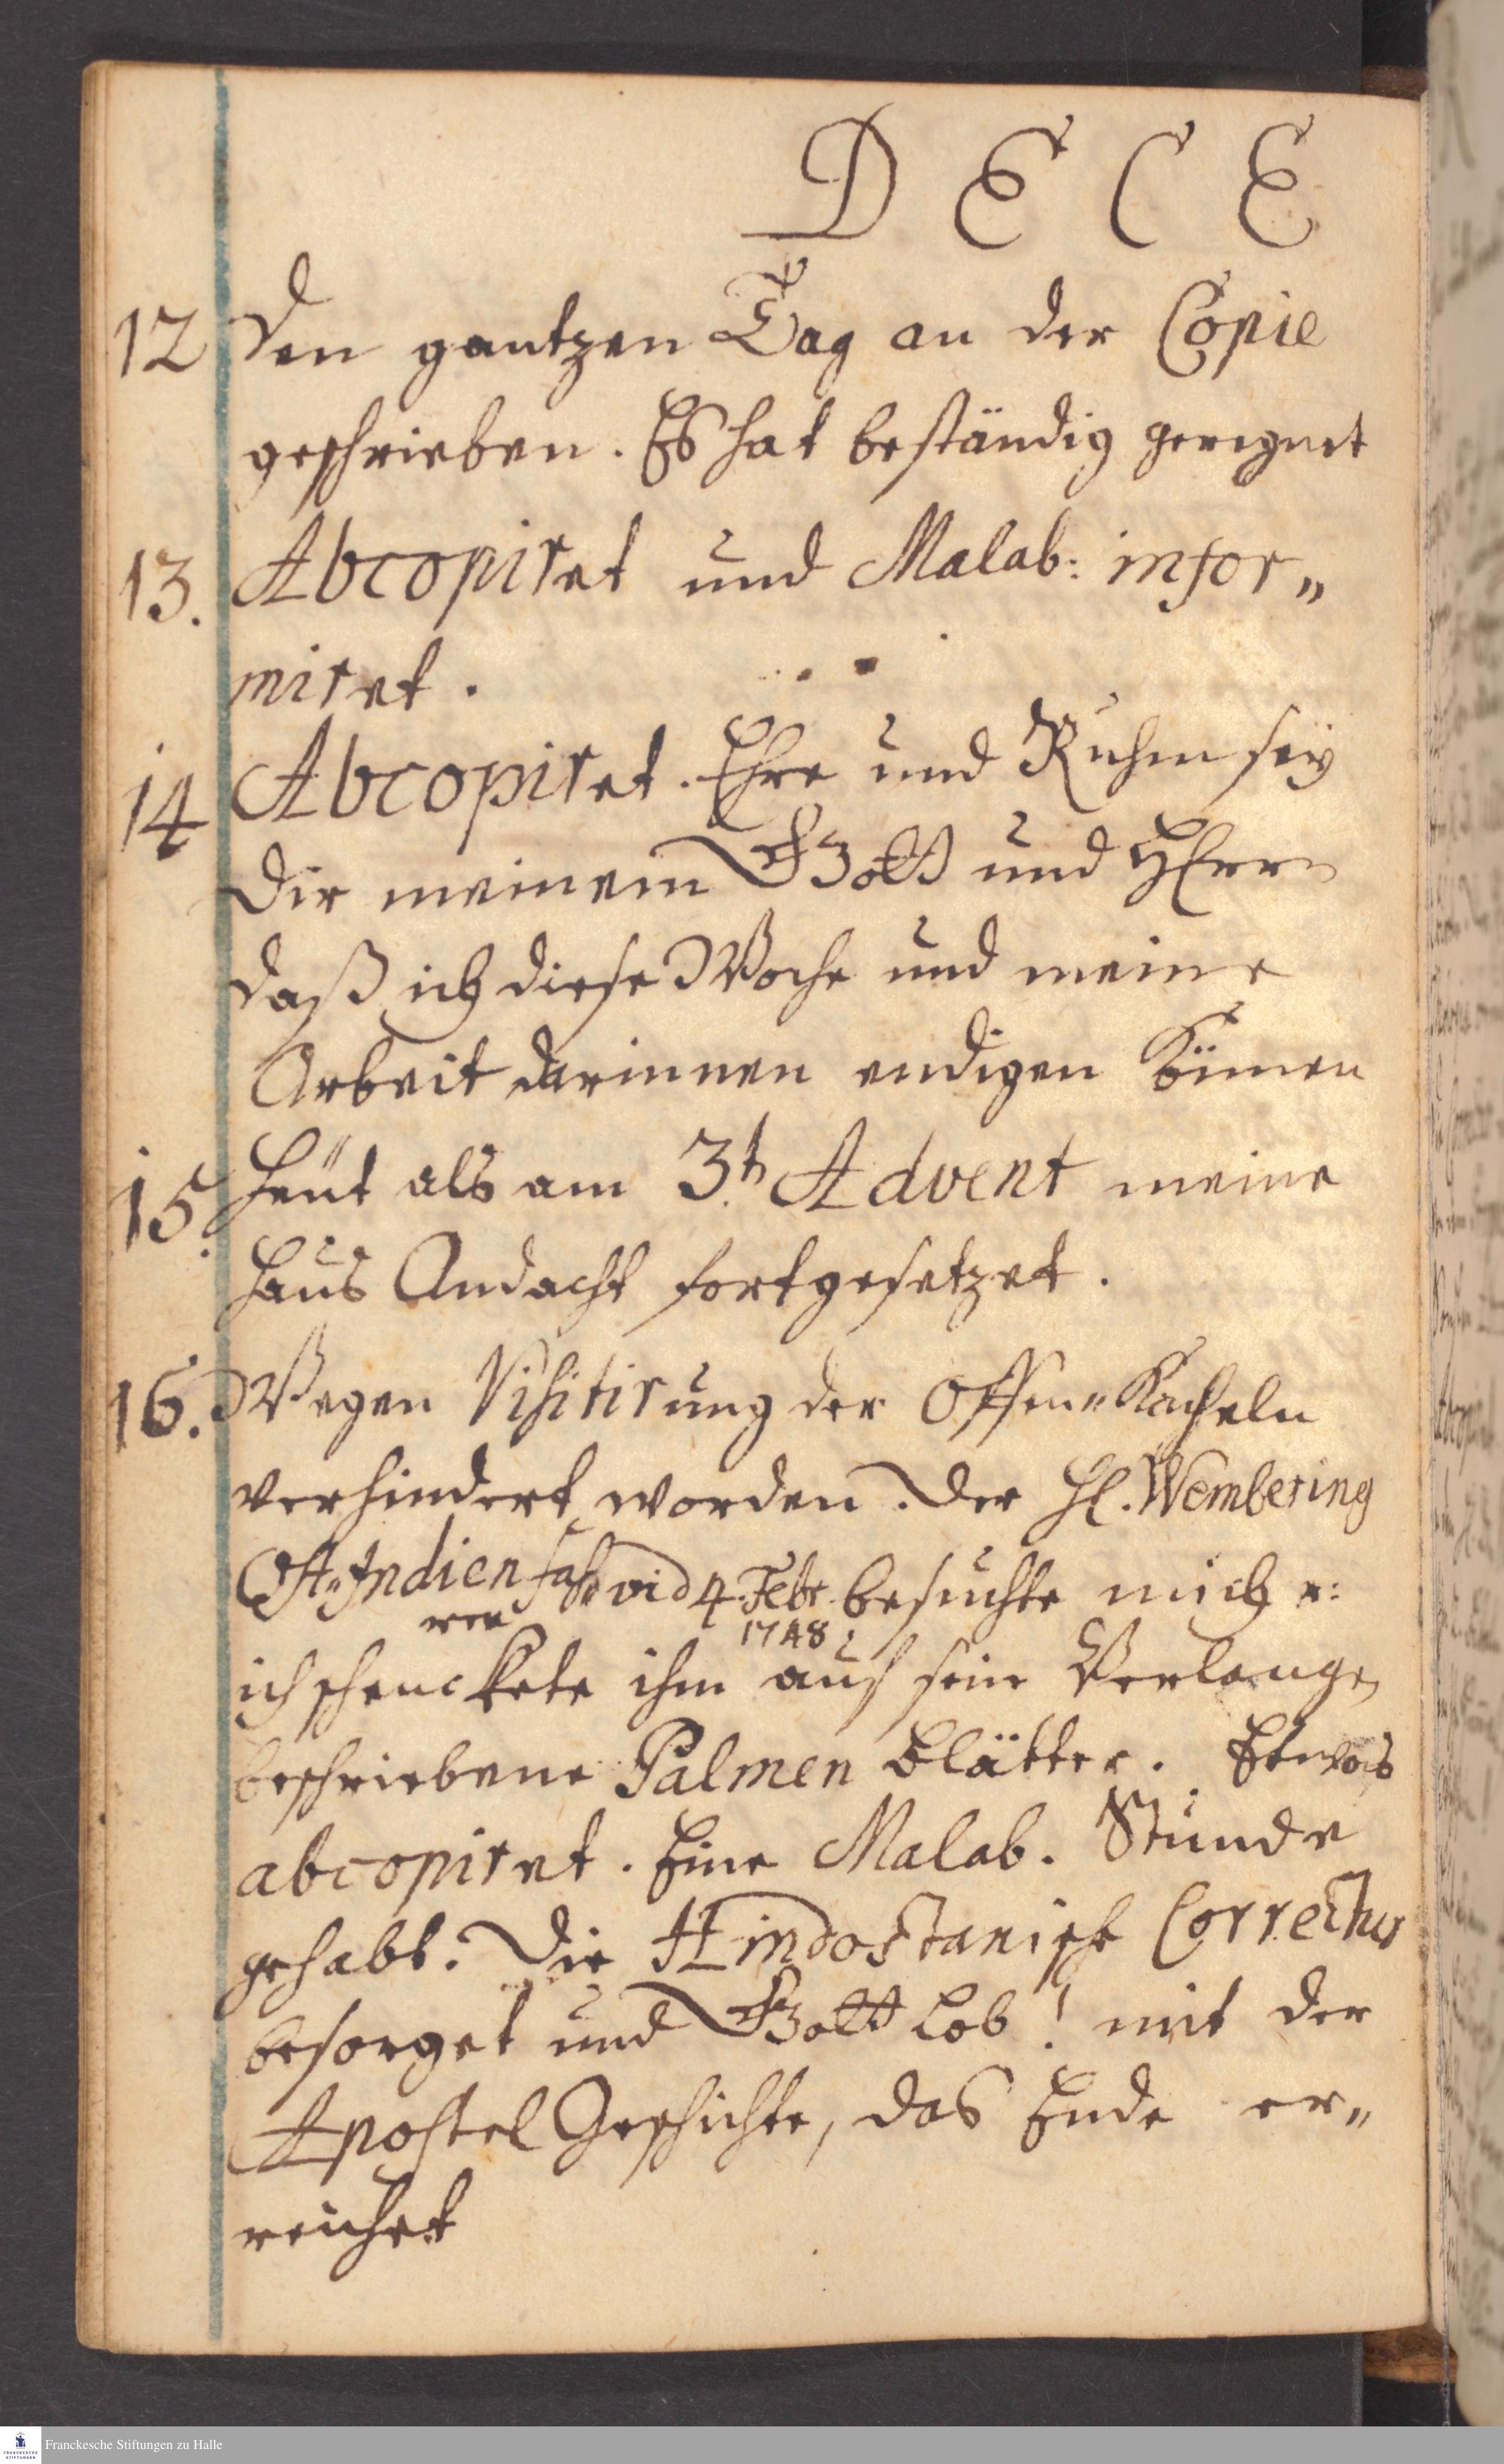 DECE
12 Den gantzen Tag an der Copie
geschrieben. Es hat beständig geregnet
13. Abcopiret und Malab: infor„
miret.
14 Abcopiret. Ehre und Ruhm sey
Dir meinem Gott und HErrn
daß ich diese Woche und meine
Arbeit darinnen endigen können
15. Heüt als am 3t Advent meine
Haus Andacht fortgesetzet.
16. Wegen Visitirung der Offen„Kacheln
verhindert worden. Der H. Wembering
Ost„Indienfah vid 4. Febr. besuchte mich u:
ren 1748
ich schenckete ihm auf sein Verlangen
beschriebene Palmen Blätter. Etwas
abcopiret. Eine Malab. Stunde
gehabt. Die Hindostanische Correctur
besorget und Gott Lob! mit der
Apostel Geschichte, das Ende er„
reichet
FRANCKESCHE STIFTUNGEN
Franckesche Stiftungen zu Halle